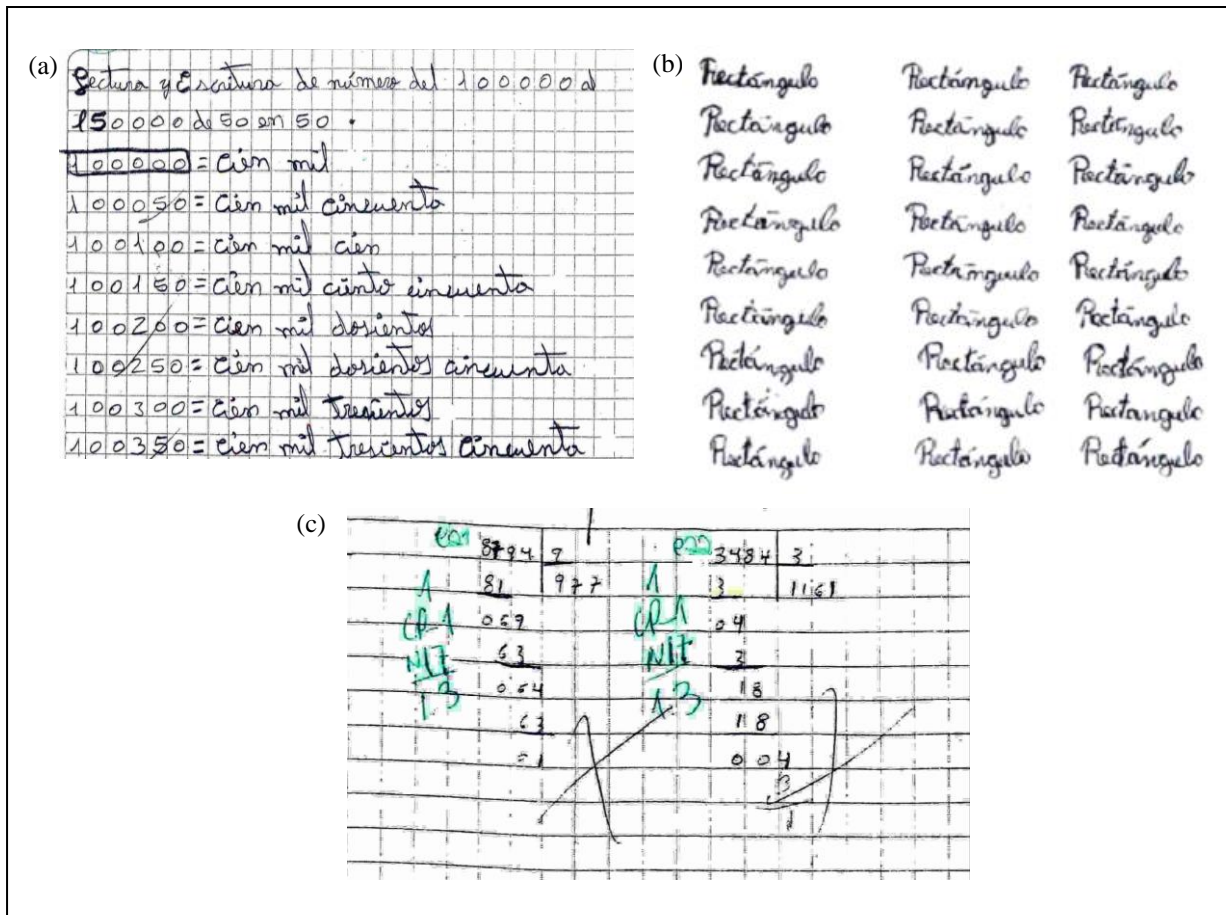 (a)
Lectura y Escritura de número del 100000 al
150000 de 50 en 50.
100000 = Cien mil
100050 = Cien mil cincuenta
100100 = Cien mil cien
100150 = Cien mil ciento cincuenta
100200 = Cien mil dosientos
100250 = Cien mil dosientos cincuenta
100300 = Cien mil Tresientos
100350 = Cien mil Tresientos Cincuenta
(b)
Rectángulo Rectángulo Rectángulo
Rectángulo Rectángulo Rectángulo
Rectángulo Rectángulo Rectángulo
Rectángulo Rectángulo Rectángulo
Rectángulo Rectángulo Rectángulo
Rectángulo Rectángulo Rectángulo
Rectángulo Rectángulo Rectángulo
Rectángulo Rectángulo Rectangulo
Rectángulo Rectángulo Rectángulo
(c)
e21 8794 9 e22 3484 3
1 81 977 1 3 1161
CP-1 069 CP-1 04
N17 63 N17 3
1.3 064 1.3 18
63 18
01 004
3
1